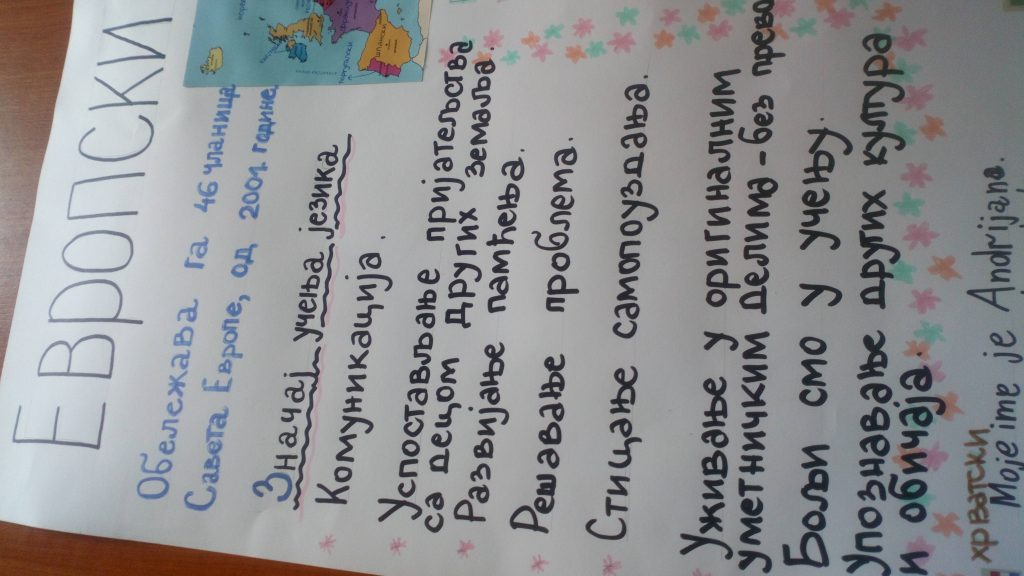 ЕВРОПСКИ
Обележава га 46 чланица
Савета Европе, од 2001. године.
Значај учења језика
Комуникација.
Успостављање пријатељства
са децом других земаља.
Развијање памћења.
Решавање проблема.
Стицање самопоуздања.
Уживање у оригиналним
уметничким делима - без прево
Бољи смо у учењу.
Упознавање других култура
и обичаја.
хрватски
Moje ime je Andrijana.